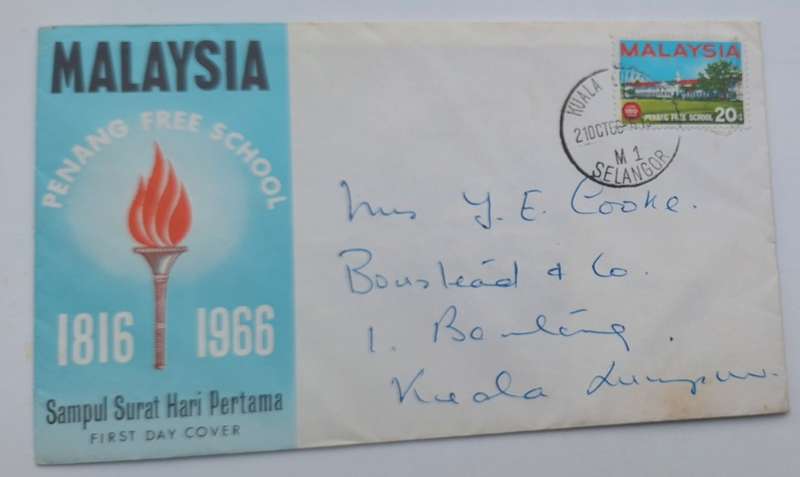 MALAYSIA
PENANG FREE SCHOOL
1816 1966
Sampul Surat Hari Pertama
FIRST DAY COVER
MALAYSIA
PENANG FREE SCHOOL 20
KUALA
21 OCT 66
M 1
SELANGOR
Mrs Y. E. Cooke.
Boustead & Co.
1.
Kuala Lumpur.